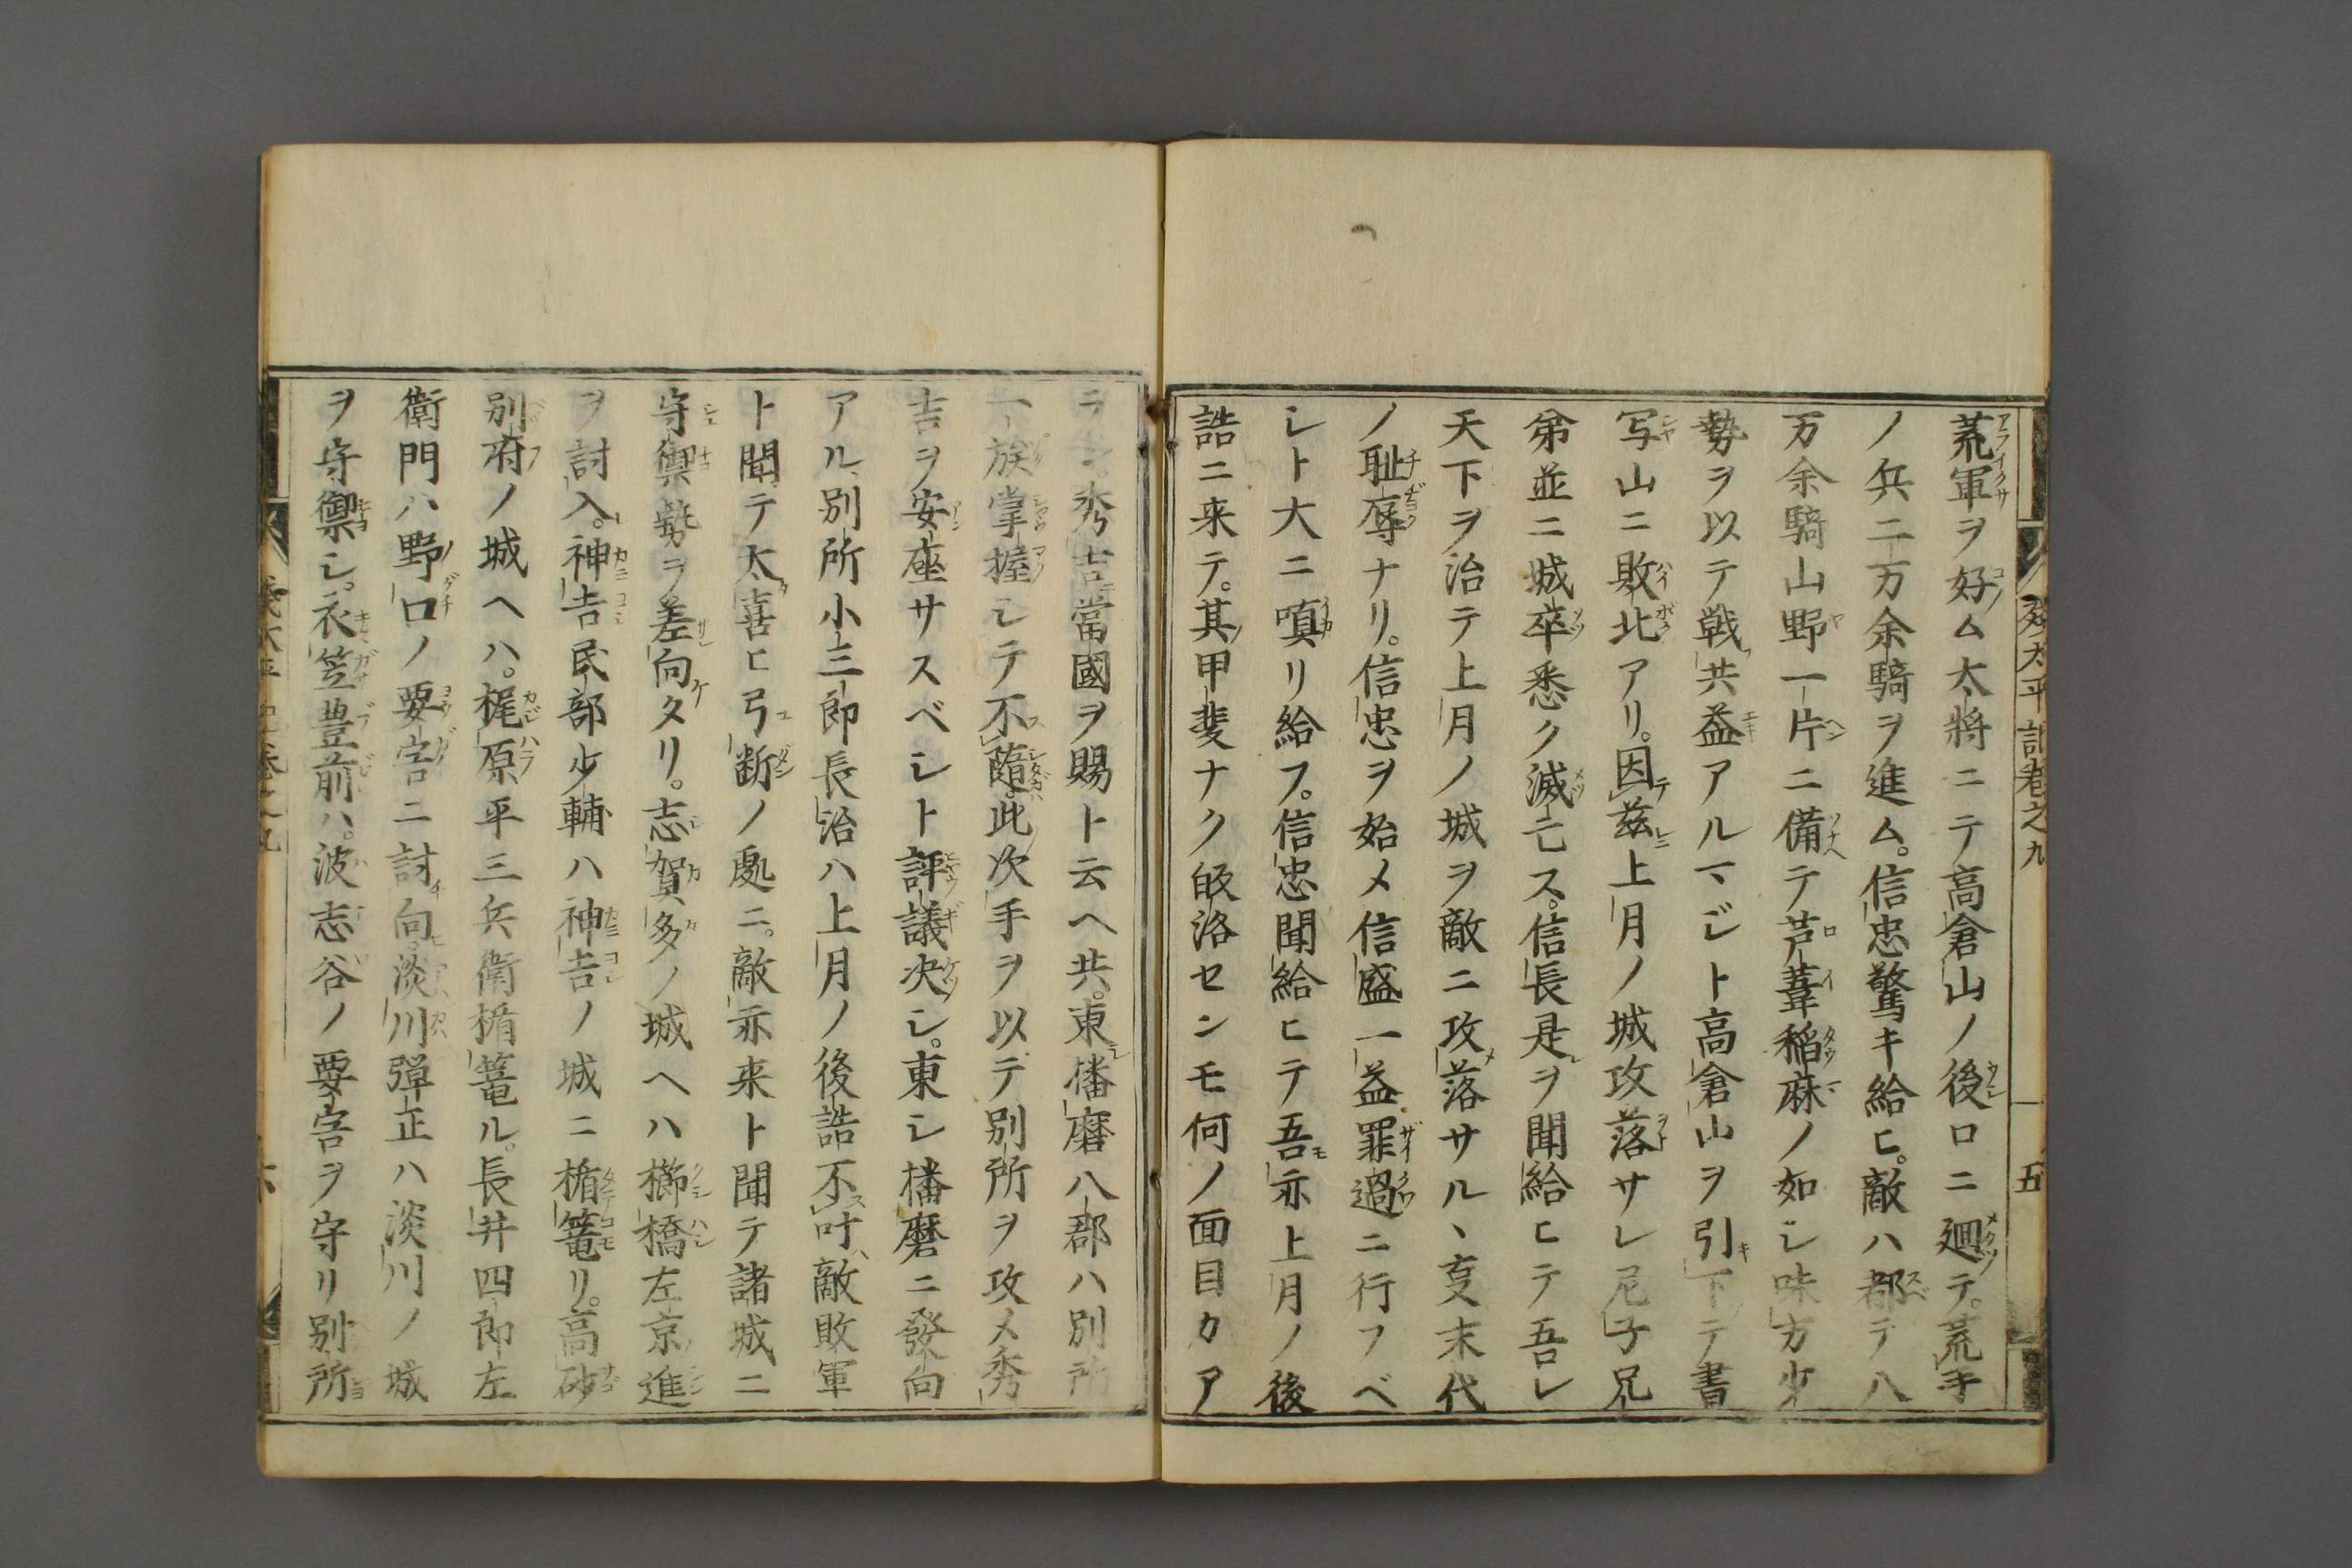 荒軍ヲ好ム太将ニテ高倉山ノ後ロニ廻テ。荒手
ノ兵二万余騎ヲ進ム。信忠驚キ給ヒ。敵ハ都テ八
万余騎山野一片ニ備テ芦葦稲麻ノ如シ味方少
勢ヲ以テ戦共益アルマジト高倉山ヲ引下テ書
写山ニ敗北アリ。因茲上月ノ城攻落サレ尼子兄
弟並ニ城卒悉ク滅亡ス。信長是ヲ聞給ヒテ吾レ
天下ヲ治テ上月ノ城ヲ敵ニ攻落サルヽ㕝末代
ノ耻辱ナリ。信忠ヲ始メ信盛一益罪過ニ行フベ
シト大ニ嗔リ給フ。信忠聞給ヒテ吾亦上月ノ後
誥ニ来テ。其甲斐ナク皈洛センモ何ノ面目カア
ラン秀吉當國ヲ賜ト云ヘ共。東播磨八郡ハ別所
一族掌握シテ不随。此次手ヲ以テ別所ヲ攻メ秀
吉ヲ安座サスベシト評議决シ。東シ播磨ニ發向
アル別所小三郎長治ハ上月ノ後誥不叶敵敗軍
ト聞テ太喜ヒ弓断ノ處ニ。敵亦来ト聞テ諸城ニ
守禦勢ヲ差向ケタリ。志賀多ノ城ヘハ櫛橋左京進
ヲ討入。神吉民部少輔ハ神吉ノ城ニ楯篭リ。高砂
別府ノ城ヘハ。梶原平三兵衛楯篭ル。長井四郎左
衛門ハ野口ノ要害ニ討向。淡川弾正ハ淡川ノ城
ヲ守禦シ。衣笠豊前ハ。波志谷ノ要害ヲ守リ別所
残太平記巻之九
五